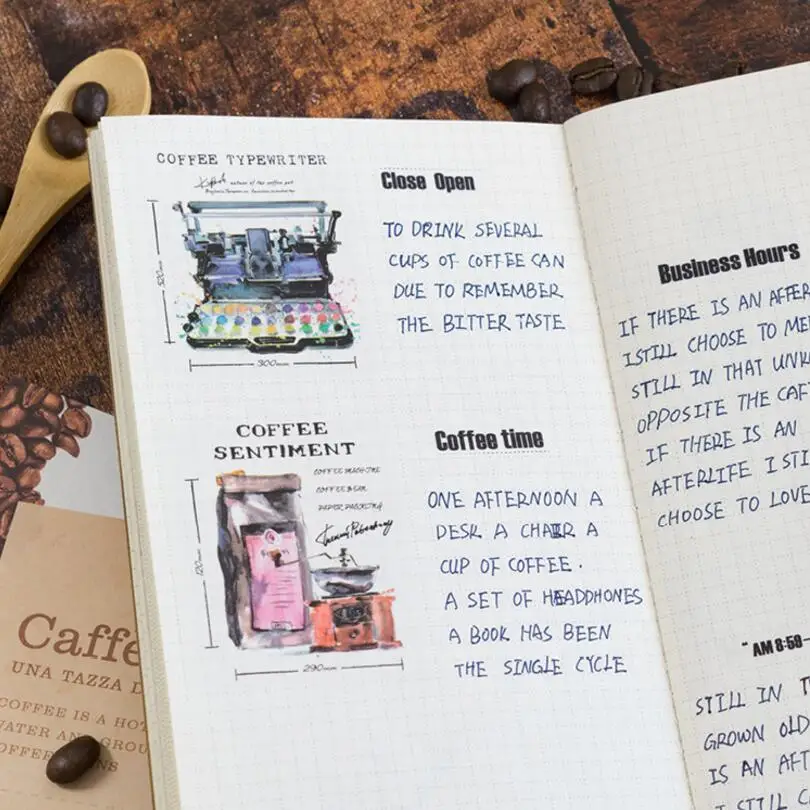 COFFEE TYPEWRITER
nature of the coffee pot
Close Open
TO DRINK SEVERAL
CUPS OF COFFEE CAN
DUE TO REMEMBER
THE BITTER TASTE
300mm
COFFEE
SENTIMENT
COFFEE MACHINE
COFFEE BEAN
PAPER PACKING
120mm
290mm
Coffee time
ONE AFTERNOON A
DESK A CHAIR A
CUP OF COFFEE.
A SET OF HEADDHONES
A BOOK HAS BEEN
THE SINGLE CYCLE
Business Hours
IF THERE IS AN AFTER
ISTILL CHOOSE TO ME
STILL IN THAT UNK
OPPOSITE THE CAF
IF THERE IS AN
AFTERLIFE I STI
CHOOSE TO LOVE
"AM 8:50-
STILL IN T
GROWN OLD
IS AN AFT
I STILL C
Caffe
UNA TAZZA D
COFFEE IS A HOT
WATER AND GROU
COFFEE